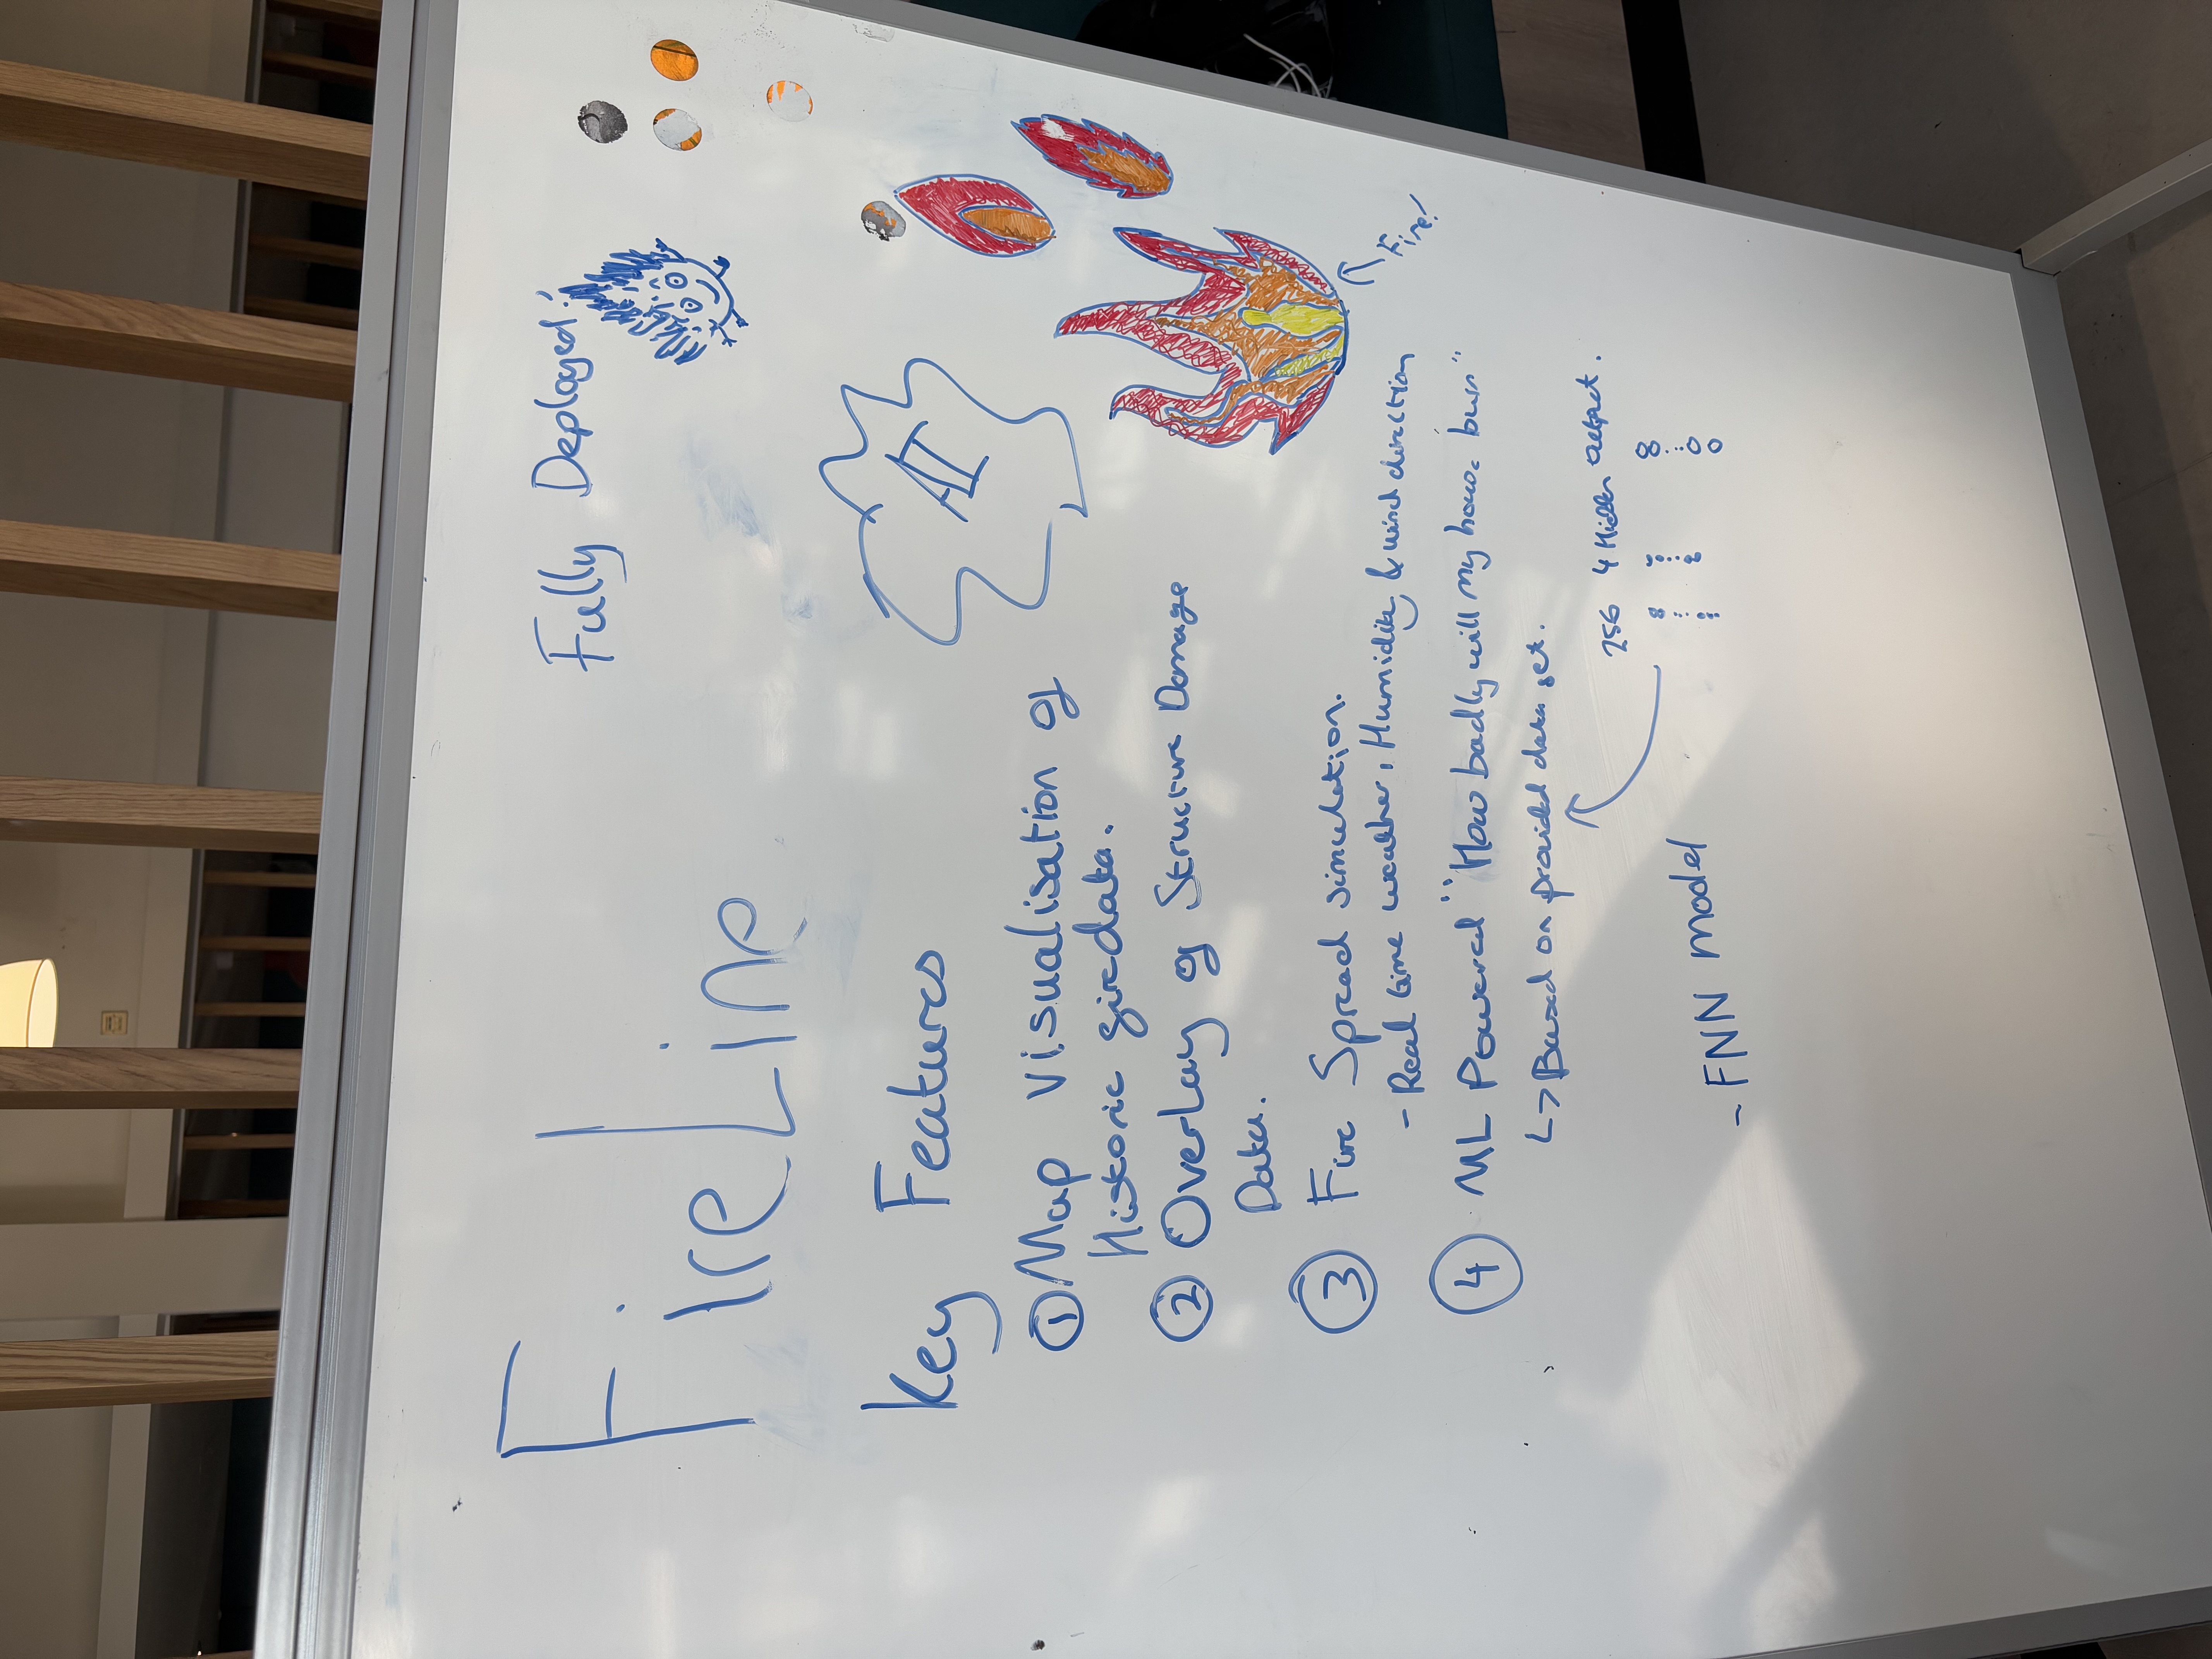 FireLine
Fully Deployed!
Key Features
AI
① Map visualisation of
Historic firedata.
② Overlay of Structure Damage
Data.
③ Fire Spread simulation.
- Real time weather, Humidity & wind direction
Fire!
④ ML Powered "How badly will my house burn"
↳ Based on provided data set.
256 4 Hidden output.
- FNN model